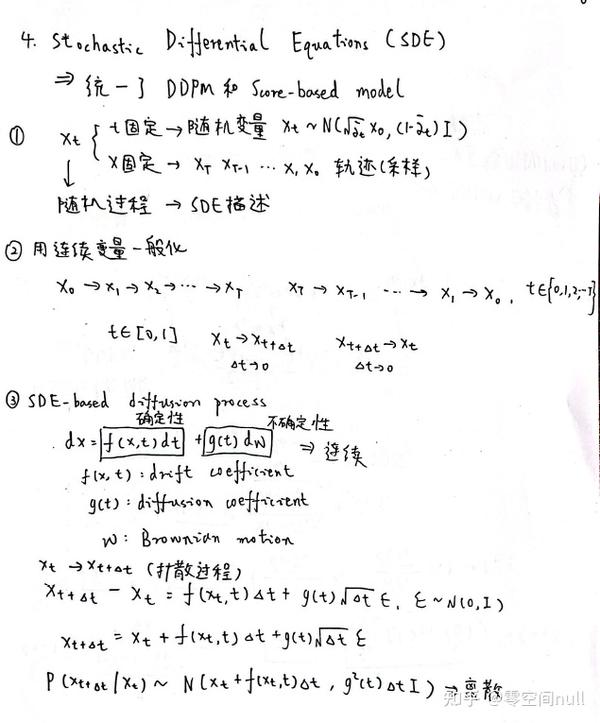 4. Stochastic Differential Equations (SDE)
⇒ 统一了 DDPM 和 Score-based model
① xt { t固定 → 随机变量 xt ~ N(√ᾱt x0, (1-ᾱt) I)
x固定 → xT xT-1 ⋯ x1 x0 轨迹(采样)
↓
随机过程 → SDE描述
② 用连续变量一般化
x0 → x1 → x2 → ⋯ → xT xT → xT-1 ⋯ → x1 → x0, t∈{0,1,2,⋯T}
t∈[0,1] xt → xt+Δt xt+Δt → xt
Δt→0 Δt→0
③ SDE-based diffusion process
确定性 不确定性
dx = f(x,t)dt + g(t)dw ⇒ 连续
f(x,t): drift coefficient
g(t): diffusion coefficient
w: Brownian motion
xt → xt+Δt (扩散过程)
xt+Δt - xt = f(xt,t)Δt + g(t)√Δt ε, ε~N(0,I)
xt+Δt = xt + f(xt,t)Δt + g(t)√Δt ε
P(xt+Δt|xt) ~ N(xt + f(xt,t)Δt, g²(t)Δt I) → 离散
知乎 @零空间null